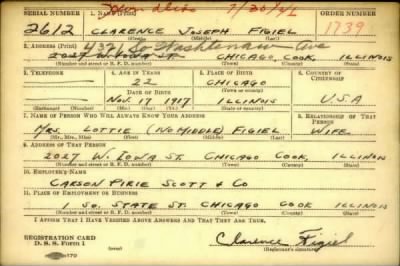 7/30/41
SERIAL NUMBER 1. NAME (Print) ORDER NUMBER
2612 CLARENCE JOSEPH FIGIEL 1739
(First) (Middle) (Last)
2. ADDRESS (Print) 4321 So Washtenaw Ave
2027 W. IOWA ST. CHICAGO, COOK, ILLINOIS
(Number and street or R. F. D. number) (Town) (County) (State)
3. TELEPHONE 4. AGE IN YEARS 5. PLACE OF BIRTH 6. COUNTRY OF CITIZENSHIP
22 CHICAGO
DATE OF BIRTH (Town or county)
NOV. 17 1917 ILLINOIS U.S.A
(Exchange) (Number) (Mo.) (Day) (Yr.) (State or country)
7. NAME OF PERSON WHO WILL ALWAYS KNOW YOUR ADDRESS 8. RELATIONSHIP OF THAT PERSON
MRS. LOTTIE (NO MIDDLE) FIGIEL WIFE
(Mr., Mrs., Miss) (First) (Middle) (Last)
9. ADDRESS OF THAT PERSON
2027 W. IOWA ST. CHICAGO COOK, ILLINOIS
(Number and street or R. F. D. number) (Town) (County) (State)
10. EMPLOYER'S NAME
CARSON PIRIE SCOTT & CO
11. PLACE OF EMPLOYMENT OR BUSINESS
1 SO. STATE ST. CHICAGO COOK ILLINOIS
(Number and street or R. F. D. number) (Town) (County) (State)
I AFFIRM THAT I HAVE VERIFIED ABOVE ANSWERS AND THAT THEY ARE TRUE.
REGISTRATION CARD
D. S. S. Form 1 Clarence Figiel
(Registrant's signature)